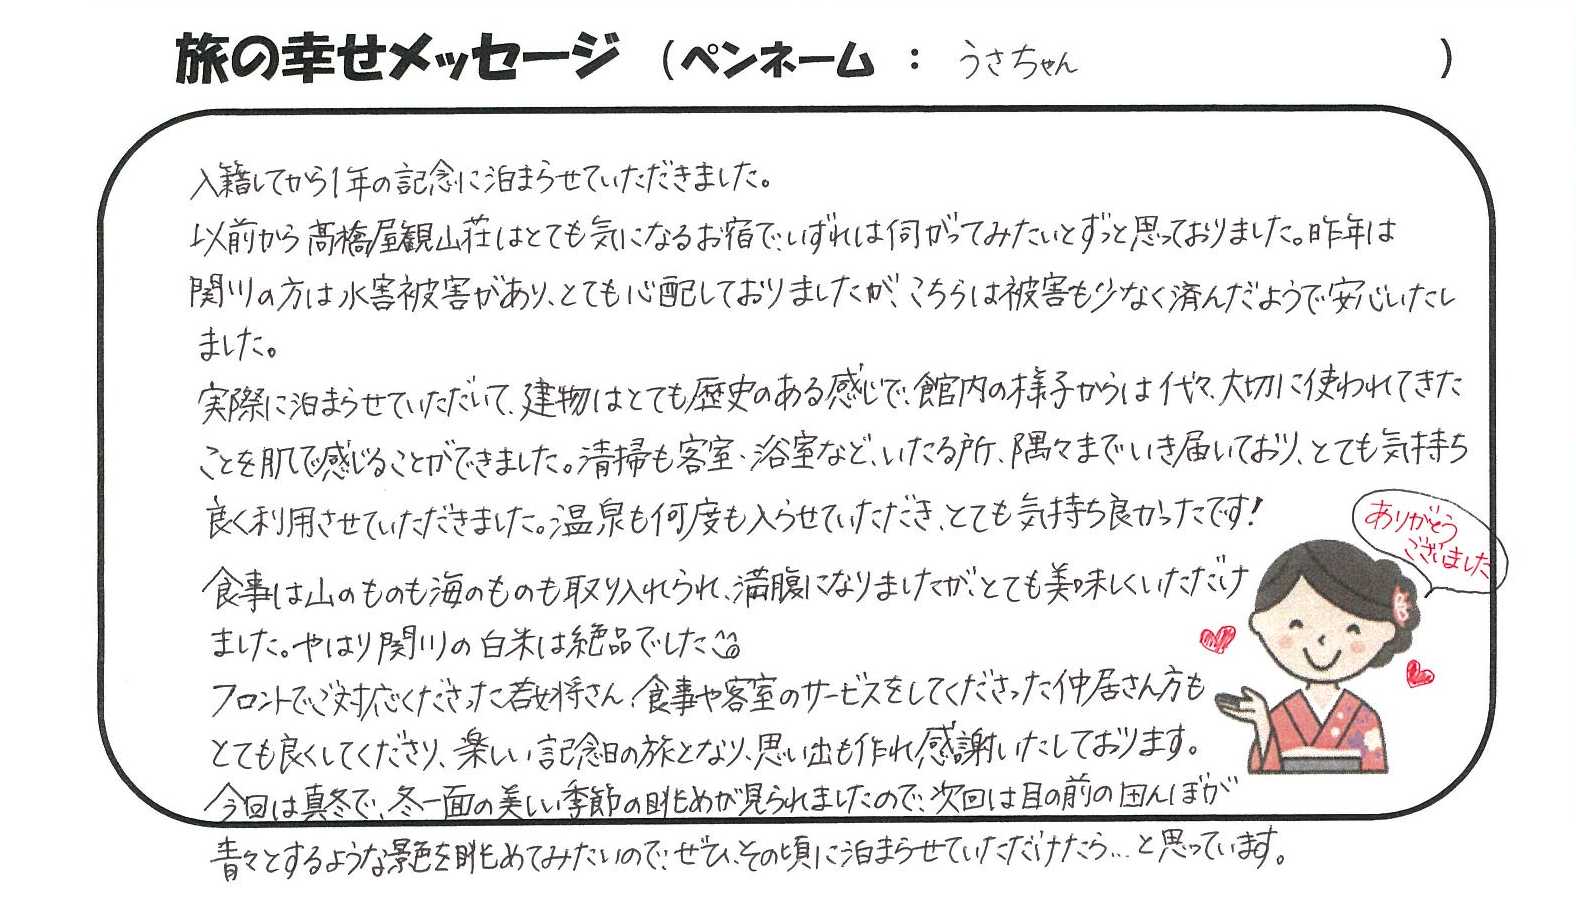 旅の幸せメッセージ （ペンネーム ： うさちゃん ）
入籍してから1年の記念に泊まらせていただきました。
以前から髙橋屋観山荘はとても気になるお宿で、いずれは伺がってみたいとずっと思っておりました。昨年は
関川の方は水害被害があり、とても心配しておりましたが、こちらは被害も少なく済んだようで安心いたし
ました。
実際に泊まらせていただいて、建物はとても歴史のある感じで、館内の様子からは代々、大切に使われてきた
ことを肌で感じることができました。清掃も客室、浴室など、いたる所、隅々までいき届いており、とても気持ち
良く利用させていただきました。温泉も何度も入らせていただき、とても気持ち良かったです！
ありがとう
ございました
食事は山のものも海のものも取り入れられ、満腹になりましたが、とても美味しくいただけ
ました。やはり関川の白米は絶品でした
フロントでご対応くださった若女将さん、食事や客室のサービスをしてくださった仲居さん方も
とても良くしてくださり、楽しい記念日の旅となり、思い出も作れ感謝いたしております。
今回は真冬で、冬一面の美しい季節の眺めが見られましたので、次回は目の前の田んぼが
青々とするような景色を眺めてみたいので、ぜひ、その頃に泊まらせていただけたら…と思っています。